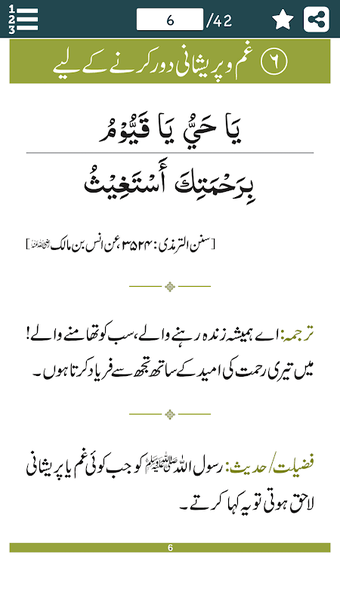 1
2
3
6 /42
۶ غم و پریشانی دور کرنے کے لیے
يَا حَيُّ يَا قَيُّوْمُ
بِرَحْمَتِكَ أَسْتَغِيْثُ
[سنن الترمذی: ۳۵۲۴، عن انس بن مالک رضی اللہ عنہ]
ترجمہ: اے ہمیشہ زندہ رہنے والے، سب کو تھامنے والے!
میں تیری رحمت کی امید کے ساتھ تجھ سے فریاد کرتا ہوں۔
فضیلت/حدیث: رسول اللہ ﷺ کو جب کوئی غم یا پریشانی
لاحق ہوتی تو یہ کہا کرتے۔
6